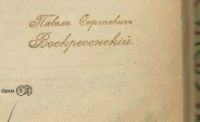 Павелъ Сергѣевичъ
Воскресенскій.